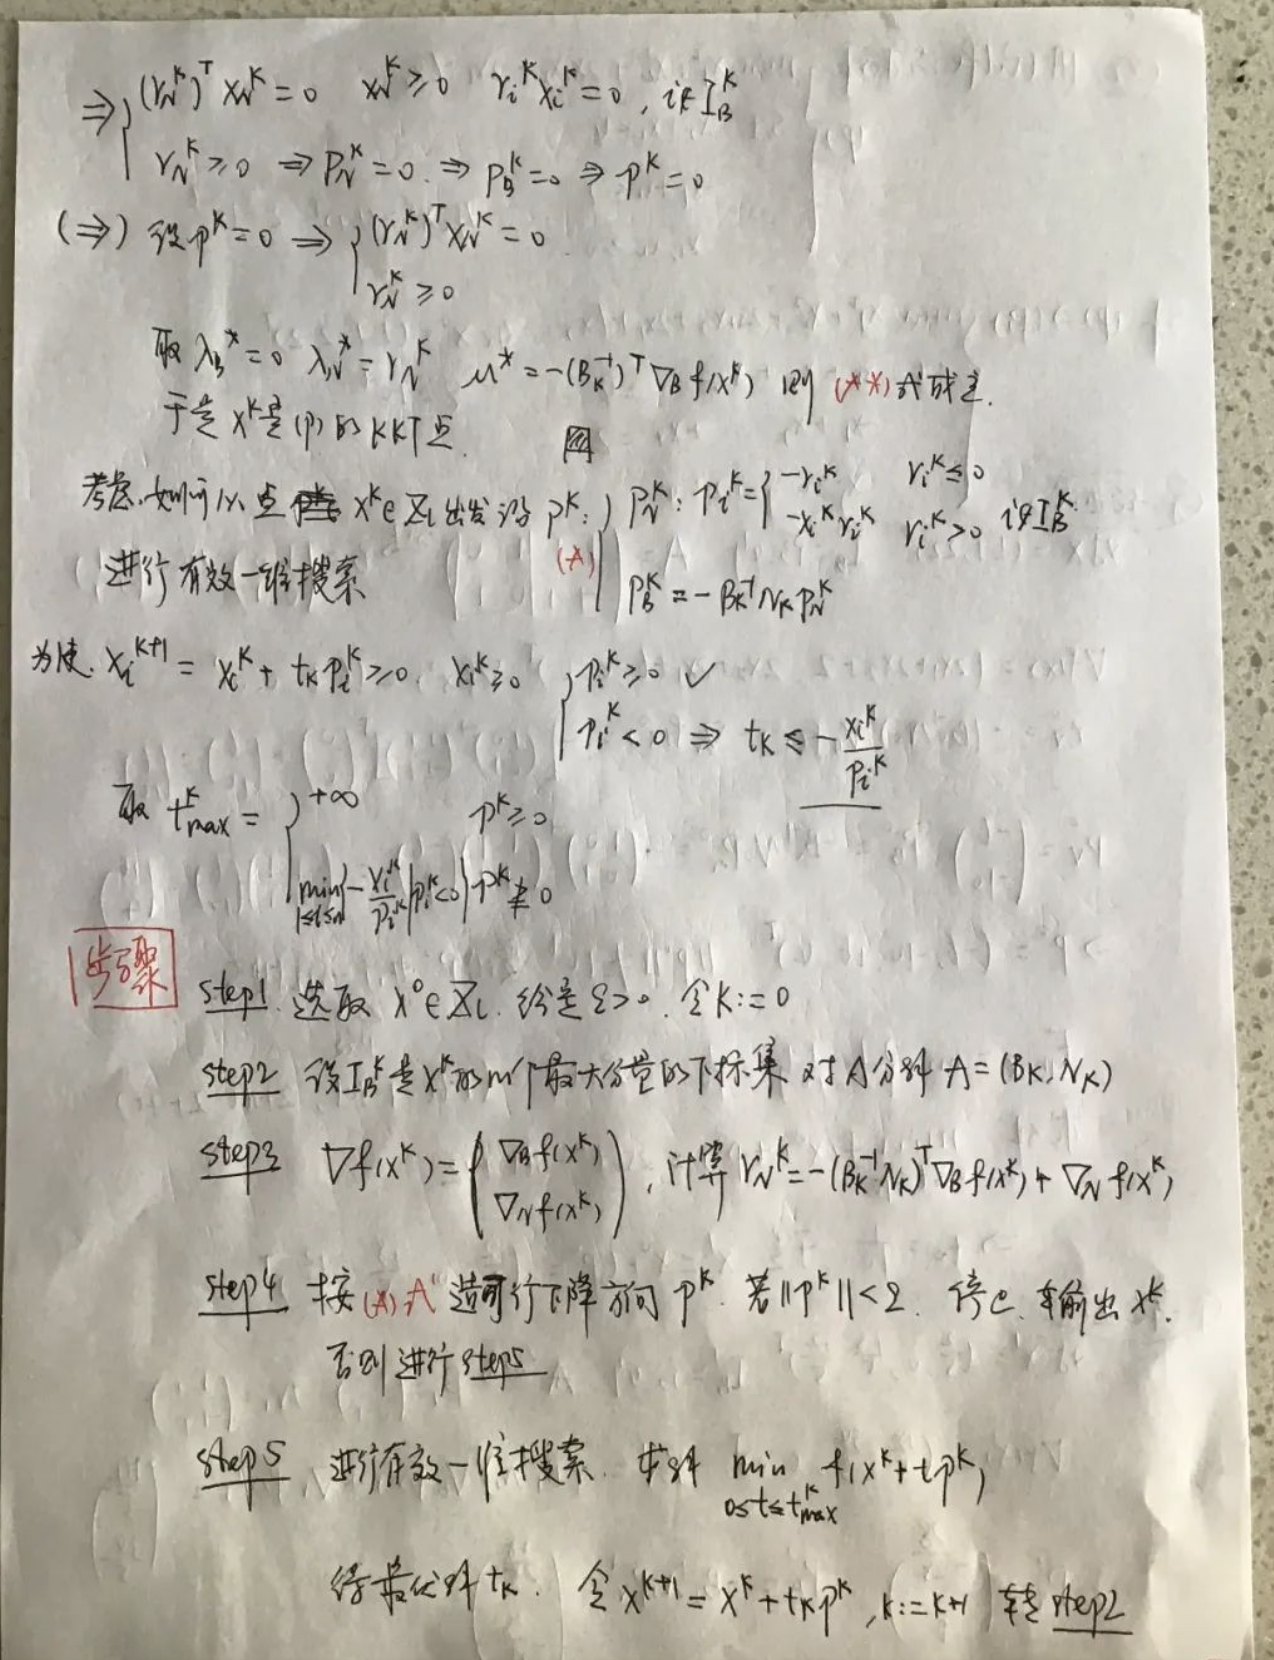 ⇒ { (r_N^k)^T x_N^k = 0   x_N^k ≥ 0   r_i^k x_i^k = 0, i∉I_B^k
r_N^k ≥ 0 ⇒ P_N^k = 0. ⇒ P_B^k = 0 ⇒ p^k = 0
(⇒) 设 p^k = 0 ⇒ { (r_N^k)^T x_N^k = 0
r_N^k ≥ 0
取 λ_B^* = 0  λ_N^* = r_N^k  μ^* = -(B_k^{-1})^T ∇_B f(x^k) 则 (**) 式成立.
于是 x^k 是 (p) 的 KKT 点.
考虑. 如何以点 x^k ∈ X_l 出发沿 p^k: { P_N^k: p_i^k = { -r_i^k   r_i^k ≤ 0
-x_i^k r_i^k   r_i^k > 0   i∉I_B^k
进行有效一维搜索 (*) P_B^k = -B_k^{-1} N_k P_N^k
为使. x_i^{k+1} = x_i^k + t_k p_i^k ≥ 0.  x_i^k ≥ 0 { p_i^k ≥ 0 ✓
p_i^k < 0 ⇒ t_k ≤ -x_i^k / p_i^k
取 t_max^k = { +∞   p^k ≥ 0
min_{1≤i≤n} { -x_i^k / p_i^k | p_i^k < 0 }  p^k ≱ 0
步骤
step1. 选取 x^0 ∈ X_l. 给定 ε > 0. 令 k := 0
step2 设 I_B^k 是 x^k 的 m 个最大分量的下标集 对 A 分解 A = (B_k, N_k)
step3 ∇f(x^k) = ( ∇_B f(x^k)
∇_N f(x^k) ), 计算 r_N^k = -(B_k^{-1} N_k)^T ∇_B f(x^k) + ∇_N f(x^k)
step4 按 (*) 式 造可行下降方向 p^k. 若 ||p^k|| < ε. 停止. 输出 x^k.
否则进行 step5
step5 进行有效一维搜索. 求解 min_{0≤t≤t_max^k} f(x^k + t p^k)
得最优解 t_k. 令 x^{k+1} = x^k + t_k p^k, k := k+1 转 step2